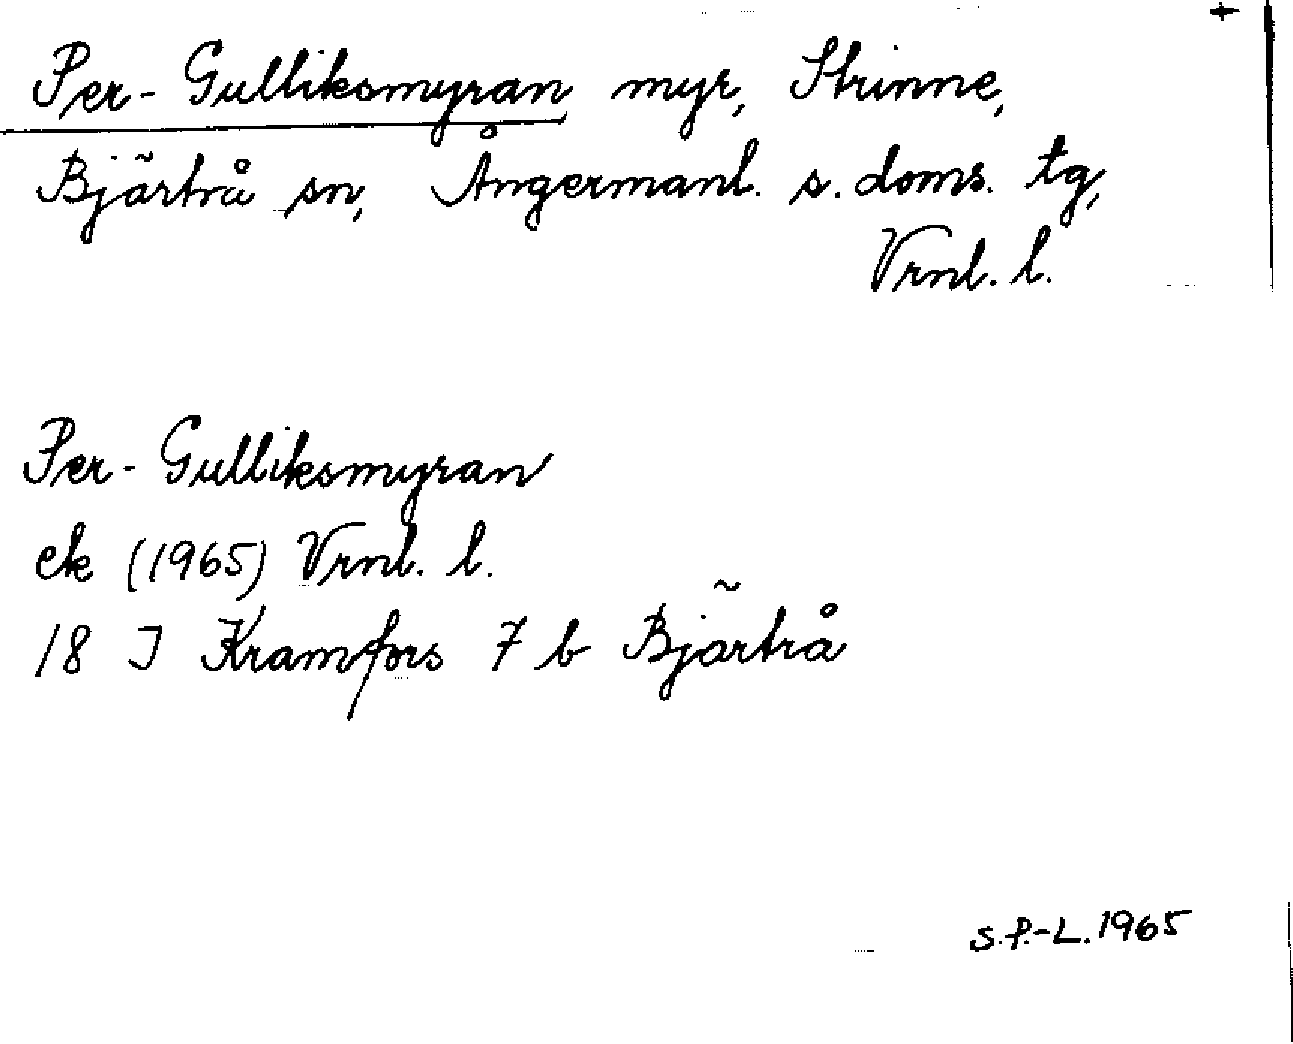 Per-Gulliksmyran myr, Strinne,
Bjärtrå sn, Ångermanl. s. doms. tg,
Vrnl. l.
Per-Gulliksmyran
ek (1965) Vrnl. l.
18 I Kramfors 7 b Bjärtrå
S.P.-L. 1965